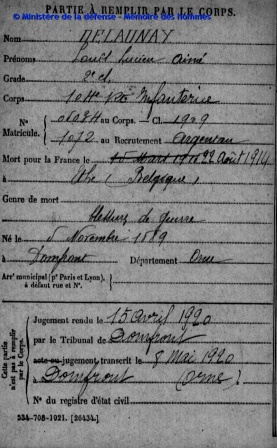 © Ministère de la défense - Mémoire des hommes
PARTIE À REMPLIR PAR LE CORPS.
Nom DELAUNAY
Prénoms Louis Lucien Aimé
Grade 2e cl
Corps 104e Rgt Infanterie
N° Matricule. au Corps. Cl. 1909
1072 au Recrutement Argentan
Mort pour la France le 22 Août 1914
à Ethe (Belgique)
Genre de mort
blessures de guerre
Né le 5 Novembre 1889
à Domfront Département Orne
Arrt municipal (pr Paris et Lyon), à défaut rue et N°.
Cette partie n'est pas à remplir par le Corps.
Jugement rendu le 15 avril 1920
par le Tribunal de Domfront
acte ou jugement transcrit le 8 Mai 1920
à Domfront (Orne)
N° du registre d'état civil
534-708-1921. [26434.]